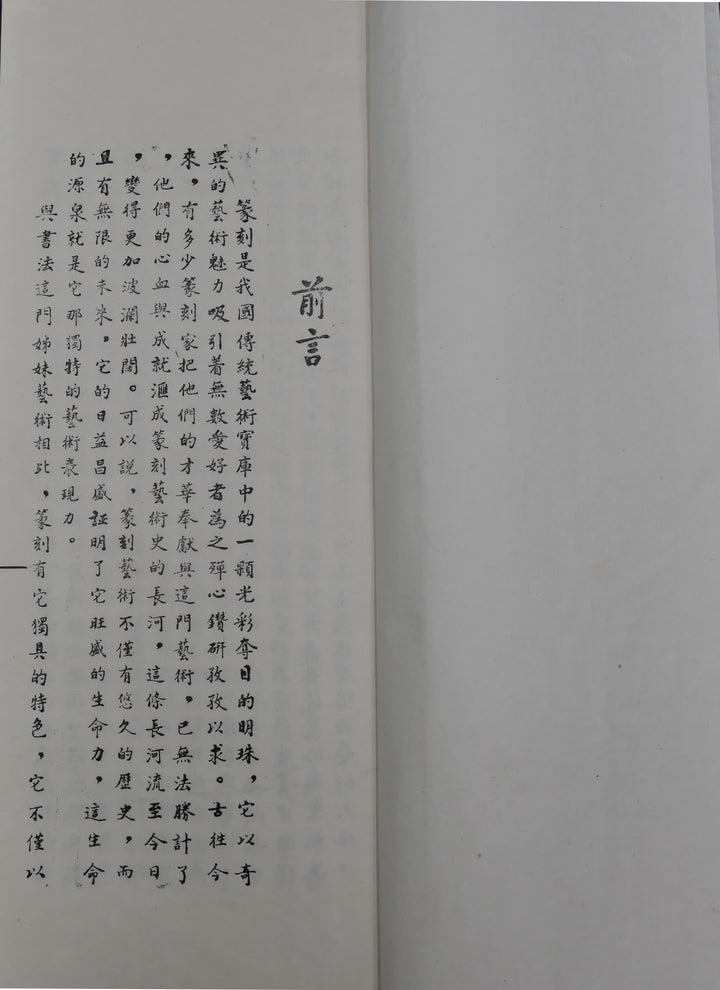 前言
篆刻是我國傳統藝術寶庫中的一顆光彩奪目的明珠，它以奇
異的藝術魅力吸引着無數愛好者為之殫心鑽研孜孜以求。古往今
來，有多少篆刻家把他們的才華奉獻與這門藝術，已無法勝計了
，他們的心血與成就滙成篆刻藝術史的長河，這條長河流至今日
，變得更加波瀾壯闊。可以説，篆刻藝術不僅有悠久的歷史，而
且有無限的未來。它的日益昌盛証明了它旺盛的生命力，這生命
的源泉就是它那獨特的藝術表現力。
與書法這門姊妹藝術相比，篆刻有它獨具的特色，它不僅以